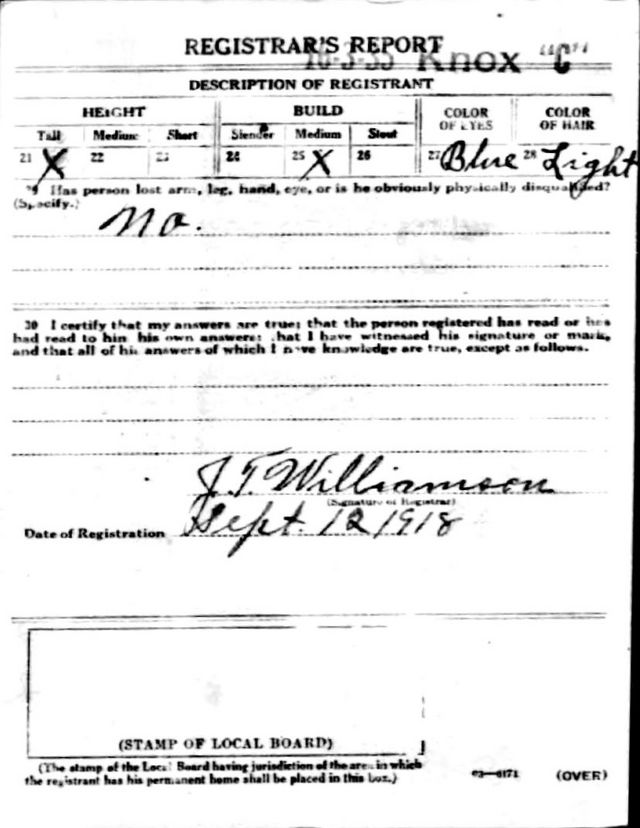 REGISTRAR'S REPORT
10-3-35 Knox "C"
DESCRIPTION OF REGISTRANT
HEIGHT BUILD COLOR OF EYES COLOR OF HAIR
Tall Medium Short Slender Medium Stout
21 X 22 23 24 25 X 26 27 Blue 28 Light
29 Has person lost arm, leg, hand, eye, or is he obviously physically disqualified?
(Specify.)
No.
30 I certify that my answers are true; that the person registered has read or has
had read to him his own answers; that I have witnessed his signature or mark,
and that all of his answers of which I have knowledge are true, except as follows.
J. T. Williamson
(Signature of Registrar)
Date of Registration Sept. 12 1918
(STAMP OF LOCAL BOARD)
(The stamp of the Local Board having jurisdiction of the area in which
the registrant has his permanent home shall be placed in this box.)
03—6171 (OVER)